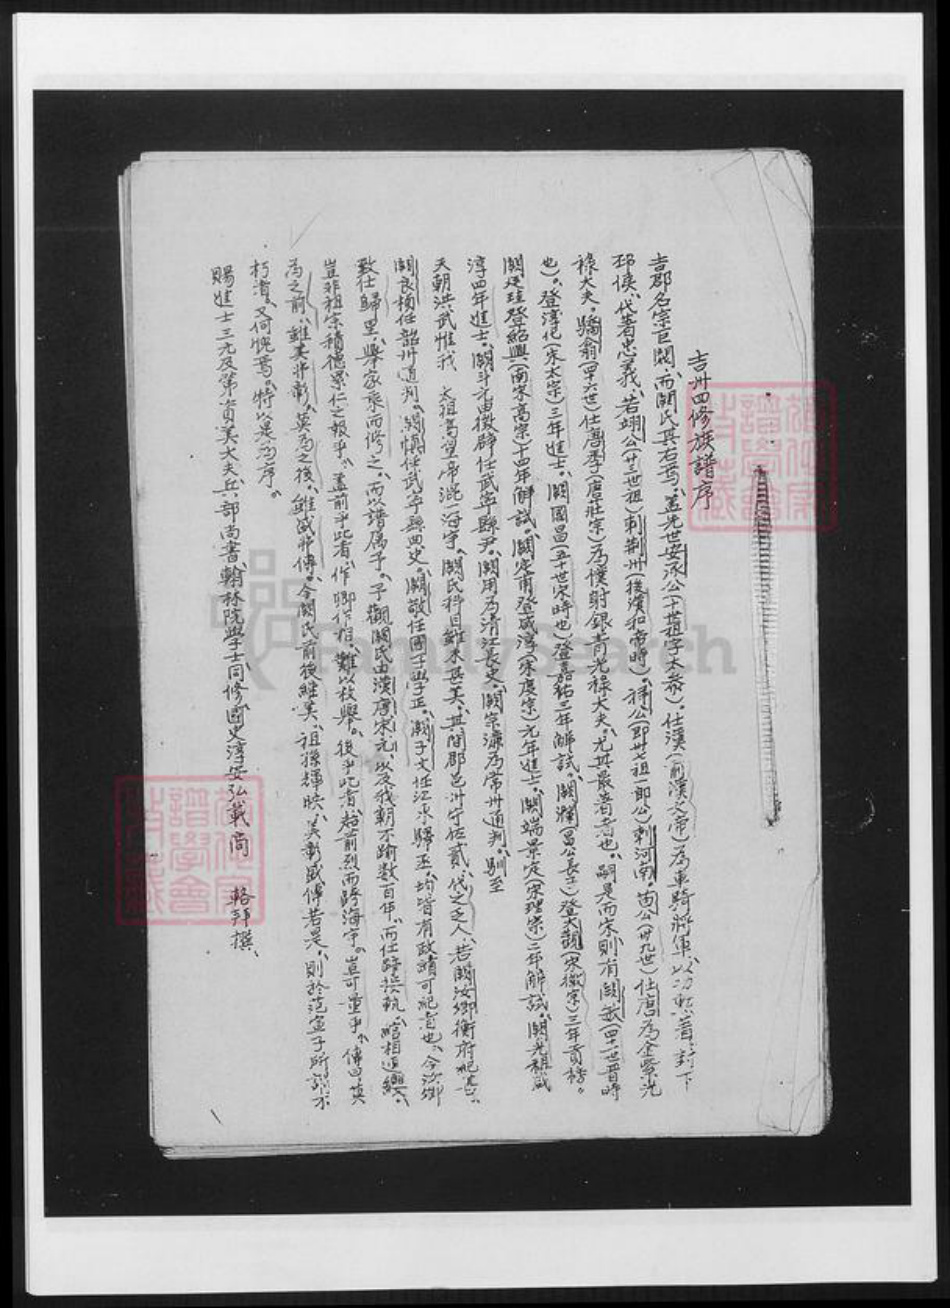 吉州四修族譜序
吉郡名宗巨閥、而闕氏其右焉、蓋先世安永公(十世祖字太蒼)。仕漢(前漢文帝)為車騎將軍、以功懋著、封下
邳侯、代著忠義、若翊公(廿三世祖)刺荊州(後漢和帝時)。擇公(即廿七祖一郎公)刺河南。甫公(廿九世)仕唐為金紫光
祿大夫。驕翁(四十六世)仕唐季(唐莊宗)為僕射銀青光祿大夫、尤其最著者也、嗣是而宋則有闕 (四十一世晋時
也)。登淳化(宋太宗)三年進士、闕國昌(五十世宋時也)登嘉祐三年解試、闕瀾(昌公長子)登大觀(宋徽宗)三年貢榜。
闕廷珪登紹興(南宋高宗)十四年解試。闕定甫登咸淳(宋度宗)元年進士。闕端景定(宋理宗)二年解試、闕光祖咸
淳四年進士。闕斗元由徵辟任武寧縣尹。闕用為清江長史。闕宗濂為常州通判。馴至
天朝洪武惟我 太祖高皇帝混一海宇、闕氏科目雖未甚美、其間郡邑州守佐貳、代之乏人、若闕汝卿衡府紀善。
闕良楨任韶州通判。闕慎任武寧縣典史。闕敬任國子學正。闕子文任江永縣丞。均皆有政績可紀者也、今汝卿
致仕歸里、舉家乘而修之、而以譜属予。予觀闕氏由漢唐宋元、以及我朝不踰数百年、而仕 接執、 相追輿、
豈非祖宗積德累仁之報乎。蓋前乎此者、作卿作相、難以枚舉。後乎此者、趋前烈而跨海宇。豈可量乎、傳曰莫
為之前、雖美弗彰、莫為之後、雖盛弗傳。今闕氏前後継美、祖孫輝映、美彰盛傳若是、則於范宣子所謂不
朽者。又何愧焉。特以是為序。
賜進士三元及第資善大夫兵部尚書翰林院學士同修國史淳安弘載商 輅拜撰、
FamilySearch